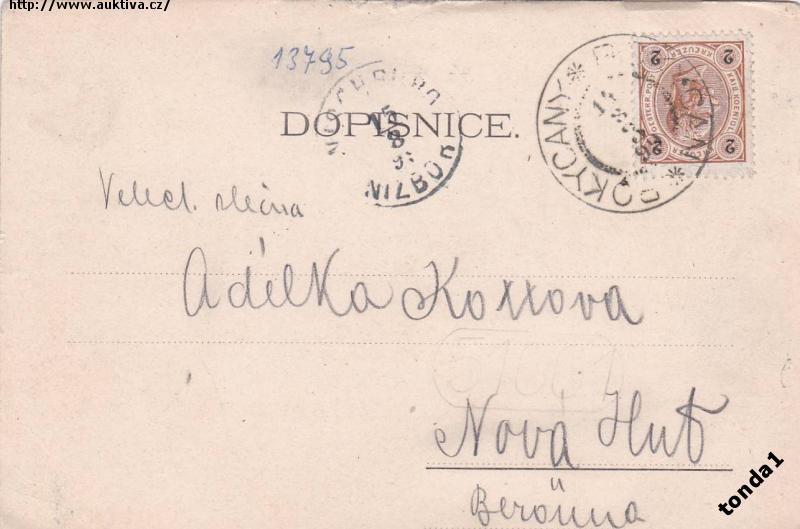 http://www.auktiva.cz/
13795
DOPISNICE.
NIZBOR
ROKYCANY
2 KREUZER 2
2 2
Velect. slečna
Adélka Koxxova
Nová Huť
Berouna
tonda1